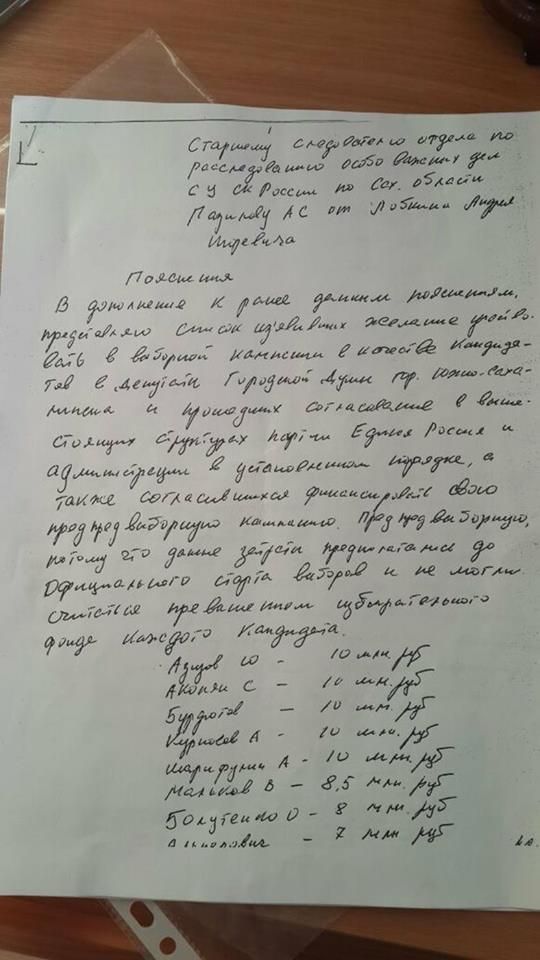 Старшему следователю отдела по
расследованию особо важных дел
СУ СК России по Сах. области
АС от Лобкина Андрея
Игоревича
Пояснения
В дополнение к ранее данным пояснениям,
представляю список изъявивших желание участво-
вать в выборной кампании в качестве кандида-
тов в депутаты Городской Думы гор. Южно-Саха-
линска и прошедших согласование в выше-
стоящих структурах партии Единая Россия и
администрации в установленном порядке, а
также согласившихся финансировать свою
предпредвыборную кампанию. Предпредвыборную,
потому что данные затраты предполагались до
официального старта выборов и не могли
считаться превышением избирательного
фонда каждого кандидата.
Ю - 10 млн. руб
Акопян С - 10 млн. руб
- 10 млн. руб
Курносов А - 10 млн. руб
Шарифулин А - 10 млн. руб
Мальков В - 8,5 млн. руб
Болутенко О - 8 млн. руб
- 7 млн руб